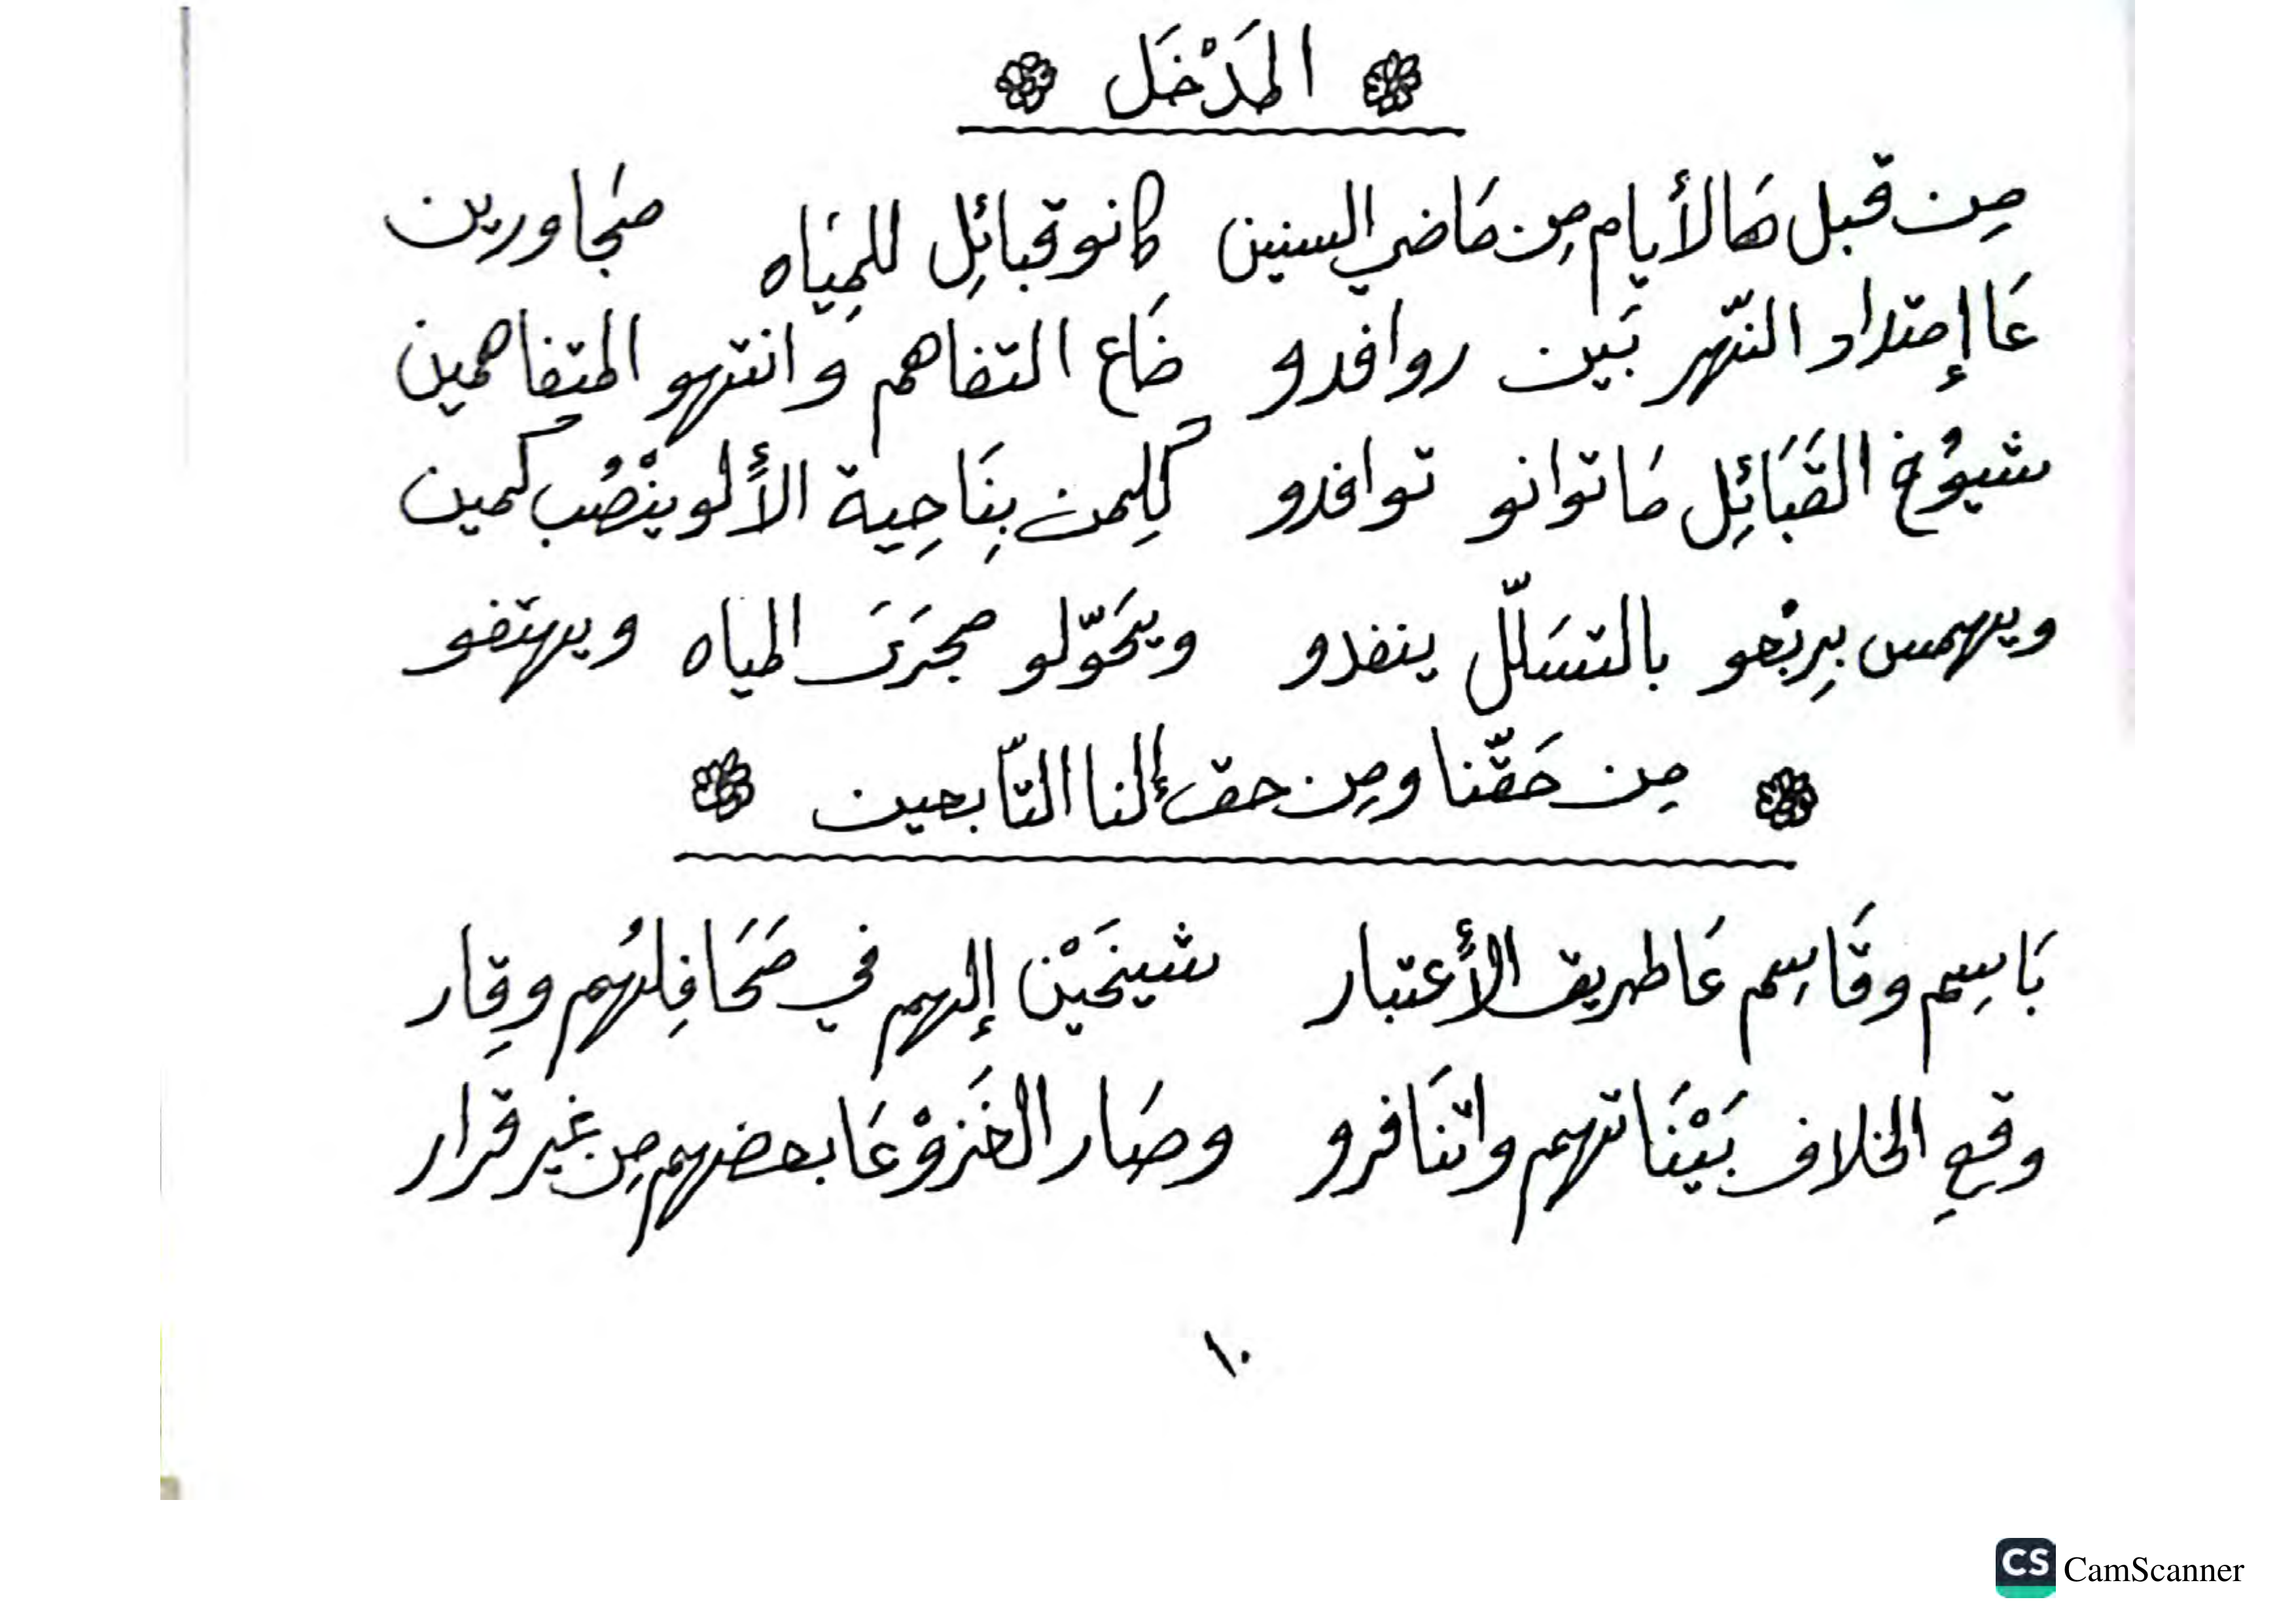 المَدْخَل
مِن قبل هَالأيام مِن مَاضي السنين كانو قبائِل للمِيَاه مجَاورين
عَا إمتداد النّهر بَين روافدو ضَاع التفاهم وَانتهو المتفاهمين
شيوُخ القَبَائِل مَا توَانو توافدو كلِمن بِنَاحِية الألو ينْصُب كمين
ويهمس بِربْعو بالتسَلّل ينفدو ويحَوّلو مجرَىَ المياه ويهتفو
مِن حَقّنا ومِن حق إلنا التّابعين
بَاسِم وقَاسِم عَا طريق الأعتبار شيخَيْن إلهم في محَافِلهُم وقِار
وقعِ الخلاف بَيْنَاتهم واتنَافرو وصَار الغَزوْ عَا بعضهم مِن غير قرار
١٠
CS CamScanner